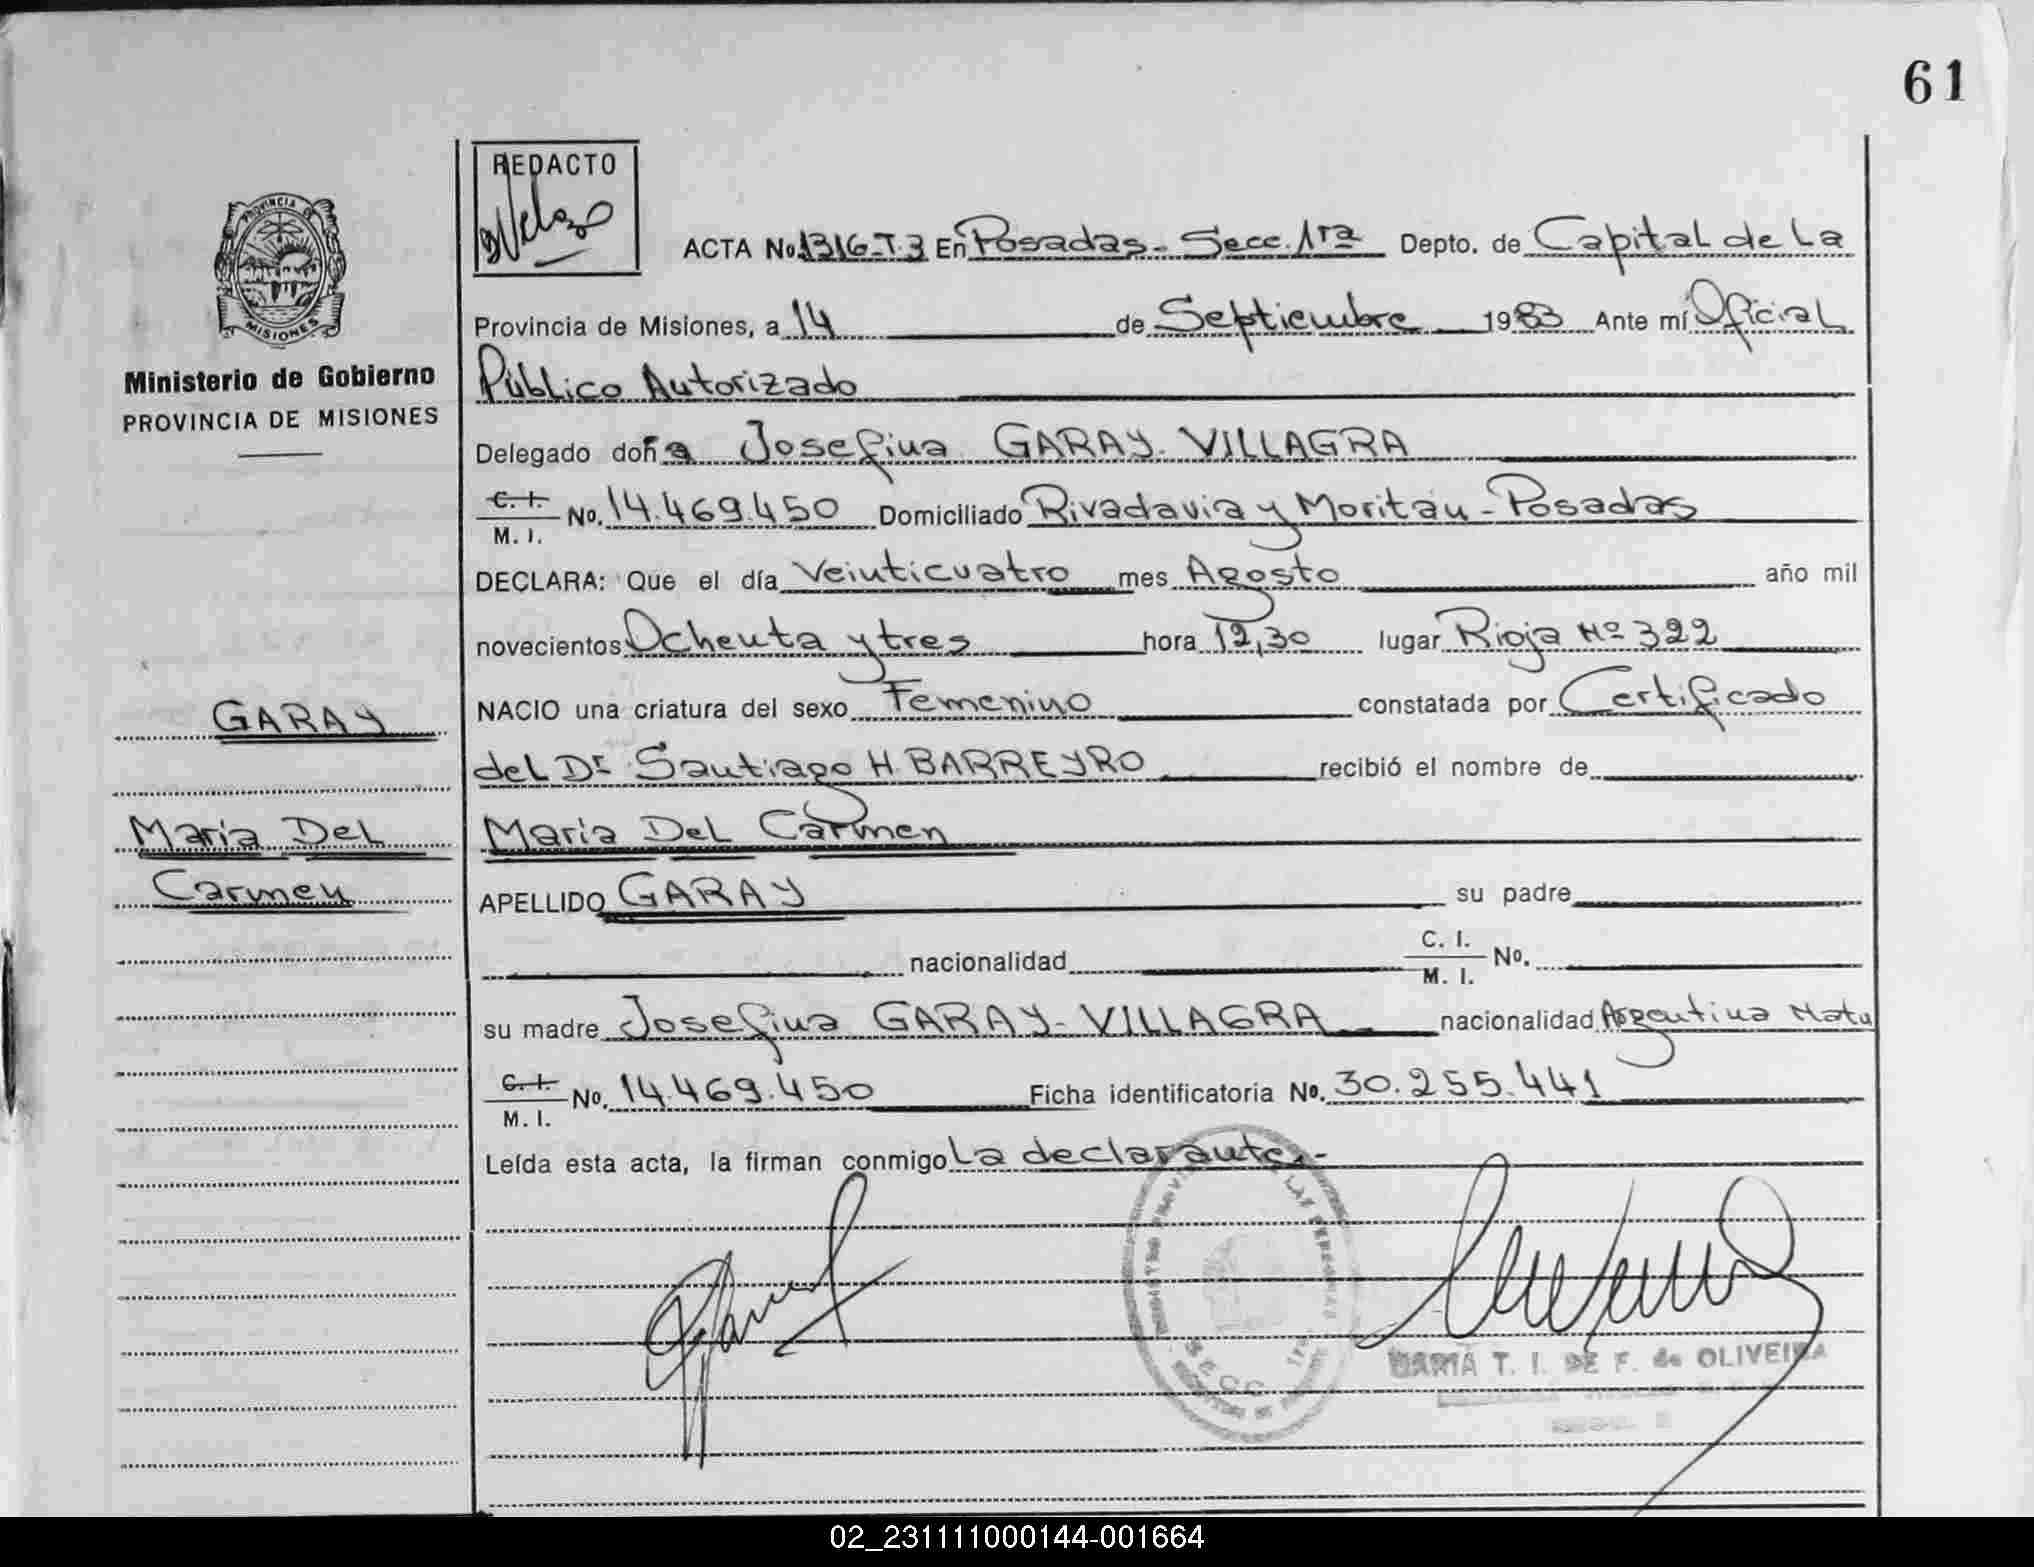 61
REDACTO
Velazo
PROVINCIA DE
MISIONES
ACTA No. 1316-T.3 En Posadas - Secc. 1ra Depto. de Capital de La
Provincia de Misiones, a 14 de Septiembre 1983 Ante mí Oficial
Ministerio de Gobierno
PROVINCIA DE MISIONES
Público Autorizado
Delegado doña Josefina GARAY-VILLAGRA
C. I.
M. I. No. 14.469.450 Domiciliado Rivadavia y Moritán - Posadas
DECLARA: Que el día Veinticuatro mes Agosto año mil
novecientos Ochenta y tres hora 12,30 lugar Rioja Nº 322
NACIO una criatura del sexo Femenino constatada por Certificado
GARAY
del Dr Santiago H. BARREYRO recibió el nombre de
María Del
Carmen
María Del Carmen
APELLIDO GARAY su padre
nacionalidad C. I.
M. I. No.
su madre Josefina GARAY-VILLAGRA nacionalidad Argentina Natu
C. I.
M. I. No. 14.469.450 Ficha identificatoria No. 30.255.441
Leída esta acta, la firman conmigo La declarante.-
SECC 1ra
MARIA T. I. DE F. de OLIVEIRA
02_231111000144-001664